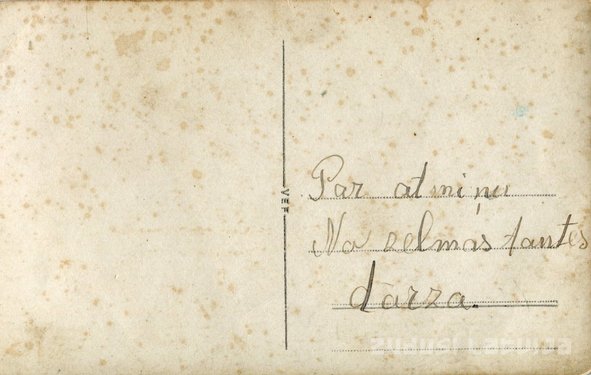 VEF
Par atmiņu
No selmas tantes
darza.